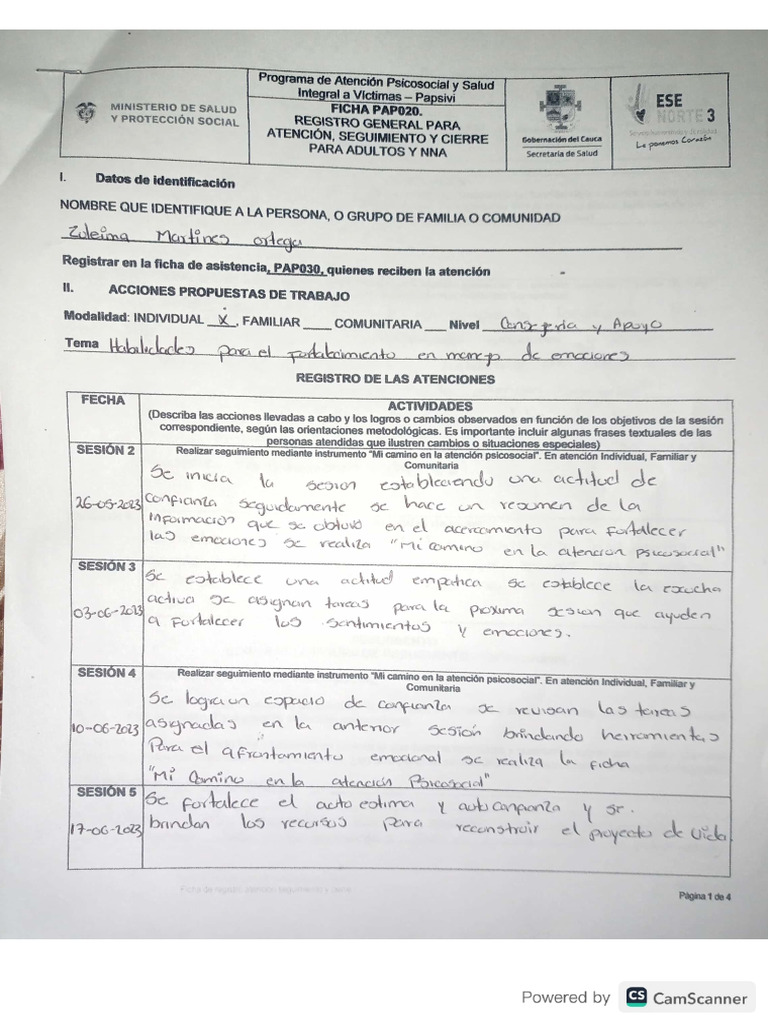 MINISTERIO DE SALUD
Y PROTECCIÓN SOCIAL
Programa de Atención Psicosocial y Salud
Integral a Víctimas – Papsivi
FICHA PAP020.
REGISTRO GENERAL PARA
ATENCIÓN, SEGUIMIENTO Y CIERRE
PARA ADULTOS Y NNA
Gobernación del Cauca
Secretaría de Salud
ESE
NORTE 3
Le ponemos Corazón
I. Datos de identificación
NOMBRE QUE IDENTIFIQUE A LA PERSONA, O GRUPO DE FAMILIA O COMUNIDAD
Zuleima Martines ortega
Registrar en la ficha de asistencia, PAP030, quienes reciben la atención
II. ACCIONES PROPUESTAS DE TRABAJO
Modalidad: INDIVIDUAL X, FAMILIAR ____ COMUNITARIA ___ Nivel Consejeria y Apoyo
Tema Habilidades para el fortalecimiento en manejo de emociones
REGISTRO DE LAS ATENCIONES
FECHA
ACTIVIDADES
(Describa las acciones llevadas a cabo y los logros o cambios observados en función de los objetivos de la sesión
correspondiente, según las orientaciones metodológicas. Es importante incluir algunas frases textuales de las
personas atendidas que ilustren cambios o situaciones especiales)
SESIÓN 2
26-05-2023
Realizar seguimiento mediante instrumento "Mi camino en la atención psicosocial". En atención Individual, Familiar y
Comunitaria
Se inicia la sesion estableciendo una actitud de
confianza seguidamente se hace un resumen de la
informacion que se obtuvo en el acercamiento para fortalecer
las emociones se realiza "Mi camino en la atencion psicosocial"
SESIÓN 3
03-06-2023
Se establece una actitud empatica se establece la escucha
activa se asignan tareas para la proxima sesion que ayuden
a fortalecer los sentimientos y emociones.
SESIÓN 4
10-06-2023
Realizar seguimiento mediante instrumento "Mi camino en la atención psicosocial". En atención Individual, Familiar y
Comunitaria
Se logra un espacio de confianza se revisan las tareas
asignadas en la anterior sesión brindando herramientas
Para el afrontamiento emocional se realiza la ficha
"Mi Camino en la atención Psicosocial"
SESIÓN 5
17-06-2023
Se fortalece el auto estima y autoconfianza y se.
brindan los recursos para reconstruir el proyecto de vida
Página 1 de 4
Powered by CS CamScanner